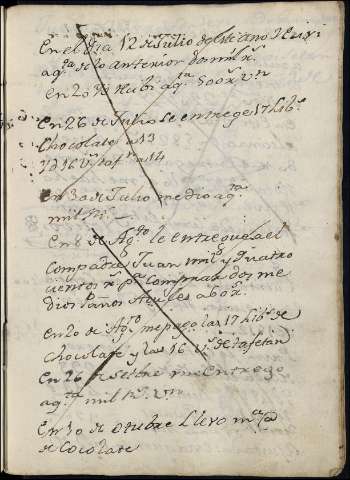 En el dia 12 de Julio del dicho año Reciui
aqta de lo anterior dos mil Rs
en 20 Recibi aqta 500 Rs vn
en 26 de Julio le entrege 17 libs
chocolate a 13
y 16 vs taftn a 14
en 30 de Julio me dio aqta
mil Rs
en 8 de Agto le entregue a el
compadre Juan mil y quatro
cientos Rs pa Comprar dos me
dios paños Azules a 60 Rs
en 20 de Agto me pago las 17 libs de
chocolate y las 16 vs de tafetan
En 26 de setbre me entrego
aqta mil Rs vn
En 30 de otubre llevo
de cocolate